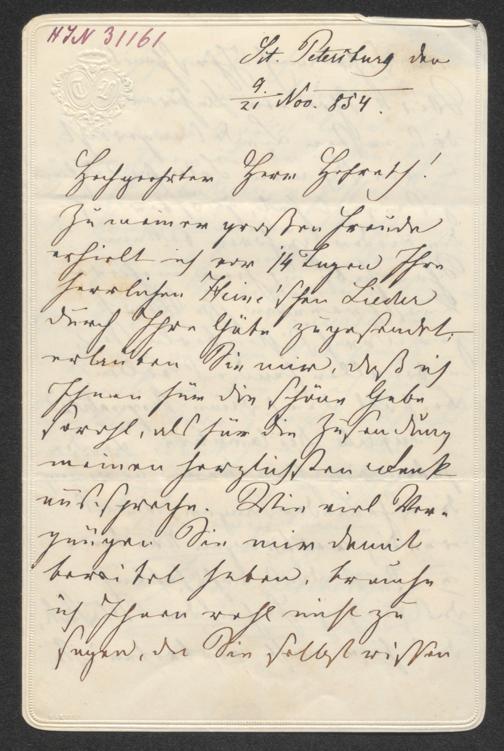 HIN 31161
St. Petersburg den
9./21 Nov. 854.
Hochgeehrter Herr Hofrath!
Zu meiner großen Freude
erhielt ich vor 14 Tagen Ihre
herrlichen Heine'schen Lieder
durch Ihre Güte zugesendet,
erlauben Sie mir, daß ich
Ihnen für die schöne Gabe
sowohl, als für die Zusendung
meinen herzlichsten Dank
ausspreche. Wie viel Ver-
gnügen Sie mir damit
bereitet haben, brauche
ich Ihnen wohl nicht zu
sagen, da Sie selbst wissen